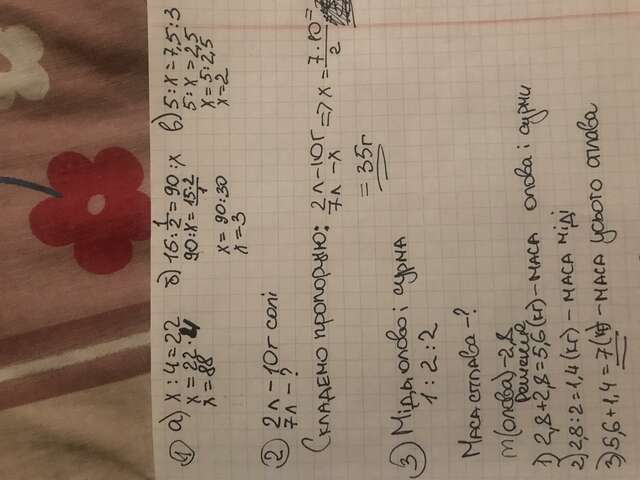 ① а) х : 4 = 22
х = 22 · 4
х = 88
б) 15 : 1/2 = 90 : х
90 : х = 15·2/1
х = 90 : 30
х = 3
в) 5 : х = 7,5 : 3
5 : х = 2,5
х = 5 : 2,5
х = 2
② 2л – 10г солі
7л – ?
Складемо пропорцію: 2л – 10г
7л – х => х = 7·10/2 =
= 35г
③ Мідь олово і сурма
1 : 2 : 2
Маса сплава – ?
m (олова) – 2,8
Рішення
1) 2,8 + 2,8 = 5,6 (кг) – маса олова і сурми
2) 2,8 : 2 = 1,4 (кг) – маса міді
3) 5,6 + 1,4 = 7 (кг) – маса усього сплава